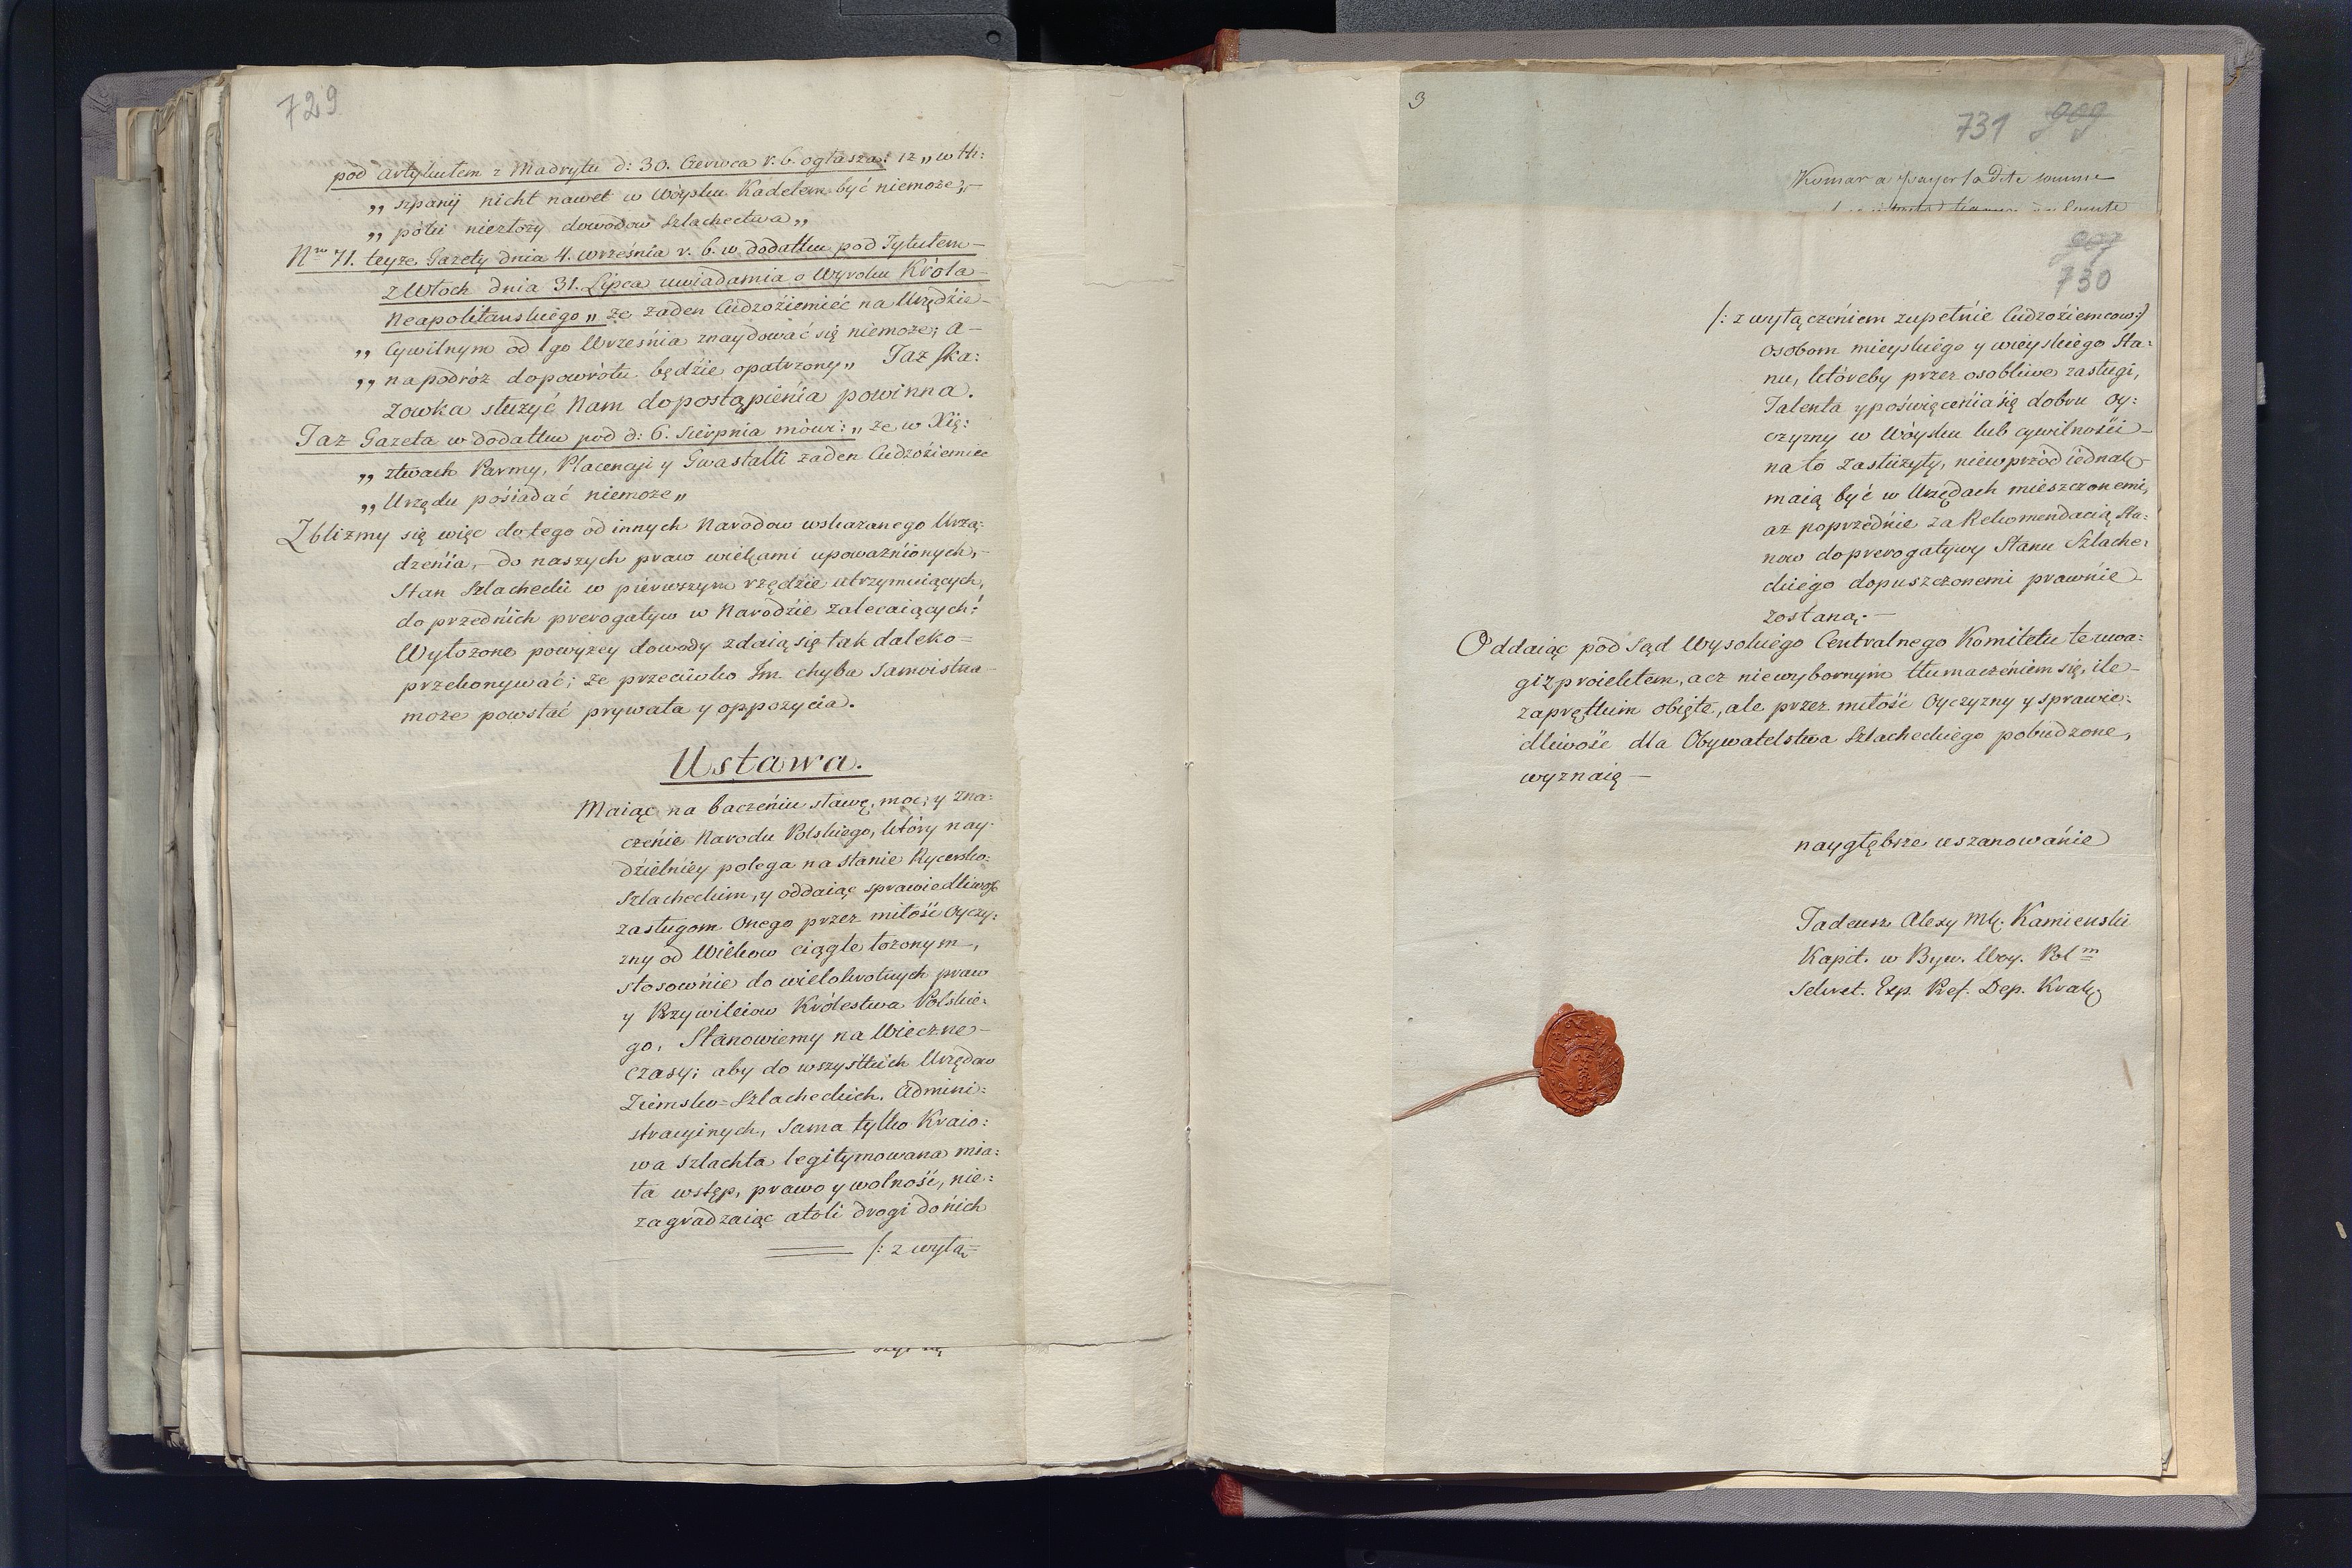 729
pod Artykułem z Madrytu d: 30. Czerwca r. b. ogłasza: iż „w Hi:
„ szpanij nicht nawet w Woysku Kadetem być niemoże,–
„ póki niezłoży dowodow szlachectwa„
Nro 71. teyże Gazety dnia 4. września r. b. w dodatku pod Tytułem–
z Włoch dnia 31. Lipca uwiadamia o Wyroku Króla–
Neapolitańskiego„ że żaden Cudzoźiemiec na Urzędźie–
„ Cywilnym od 1go Września znaydować się niemoże; a–
„ na podróż dopowrótu będźie opatrzony„ Taż ska:
zowka służyć Nam dopostąpienia powinna.
Taż Gazeta w dodatku pod d: 6. Sierpnia mówi: „że w Xię:
„ ztwach Parmy, Placencji y Gwastalli żaden Cudzoźiemiec
„ Urzędu pośiadać niemoże„
Zbliżmy się więc do tego od innych Narodow wskazanego Urzą:
dzeńia,– do naszych praw wiekami upoważńionych,–
Stan Szlachecki w pierwszym rzędźie utrzymuiących,
do przedńich prerogatyw w Narodźie zalecaiących:
Wyłożone powyżey dowody zdaią się tak daleko=
przekonywać; że przeciwko Im chyba samoistna–
może powstać prywata y oppozycia.
Ustawa.
Maiąc na baczeńiu sławę, moc, y zna:
czeńie Narodu Polskiego, który nay:
dźielńiey polega na stanie Rycersko:
Szlacheckim, y oddaiąc sprawiedliwość
zasługom Onego przez miłość Oyczy:
zny od Wiekow ciągle łożonym,
stosownie do wielokrotnych praw
y Przywileiow Królestwa Polskie:
go, Stanowiemy na Wieczne–
czasy; aby do wszystkich Urzędow
Ziemsko=Szlacheckich, Admini:
stracyinych, sama tylko Kraio:
wa szlachta legitymowana mia:
ła wstęp, prawo y wolność, nie:
zagradzaiąc atoli drogi do ńich
/: z wyłą=
3
731 909
Kumar a payer la dite somme
907
730
/: z wyłączeńiem zupełnie Cudzoźiemcow:/
osobom mieyskiego y wieyskiego Sta:
nu, któreby przez osobliwe zasługi,
Talenta y poświęceńia śię dobru Oy:
czyzny w Woysku lub cywilnośći–
na to zasłużyły, niewprzód iednak–
maią być w Urzędach mieszczonemi,
aż poprzednie za Rekomendacią Sta:
now do prerogatywy Stanu Szlache:
ckiego dopuszczonemi prawnie–
zostaną.–
Oddaiąc pod Sąd Wysokiego Centralnego Komitetu te uwa:
gi z proiektem, acz niewybornym tłumaczeńiem się, ile–
zaprętkim obięte, ale przez miłość Oyczyzny y sprawie:
dliwość dla Obywatelstwa Szlacheckiego pobudzone,
wyznaię –
naygłębsze uszanowańie
Tadeusz Alexy Kamienski
Kapit. w Byw. Woy. Pol m
Sekret. Exp. Pref. Dep. Krak.